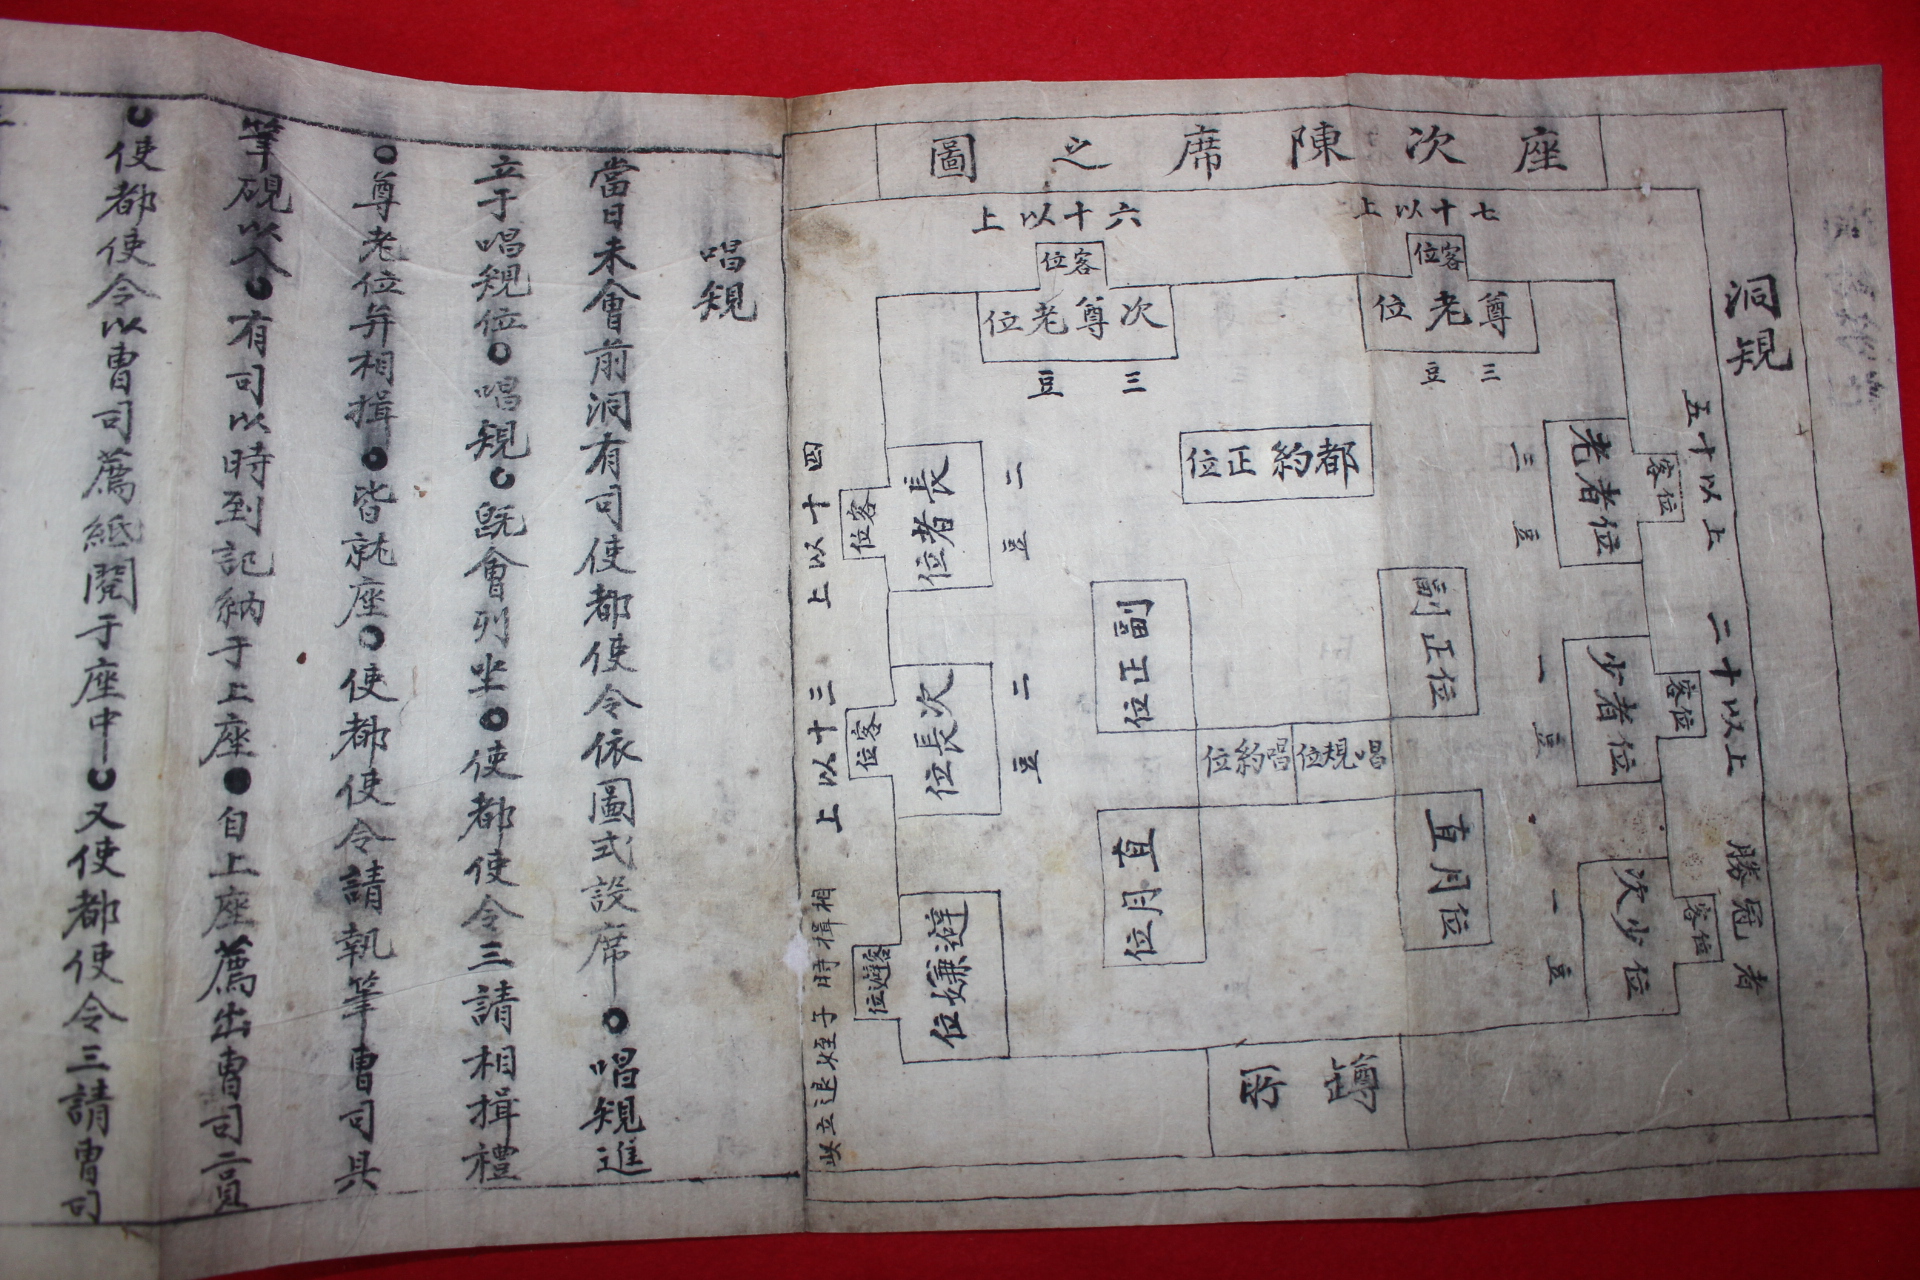 洞規
座次陳席之圖
七十以上
客位
尊老位
三豆
六十以上
客位
次尊老位
三豆
五十以上
客位
老者位
三豆
二十以上
客位
少者位
一豆
勝冠者
客位
次少位
一豆
四十以上
客位
長者位
二豆
三十以上
客位
次長位
二豆
避嫌位
客避位
相揖時子姪退立
都約正位
副正位
副正位
唱規位
唱約位
直月位
直月位
罇所
唱規
當日未會前洞有司使都使令依圖式設席○唱規進
立于唱規位○唱規○旣會列坐○使都使令三請相揖禮
○尊老位幷相揖○皆就座○使都使令請執筆曹司具
筆硯以入○有司以時到記納于上座○自上座薦出曹司二員
○使都使令以曹司薦紙閱于座中○又使都使令三請曹司